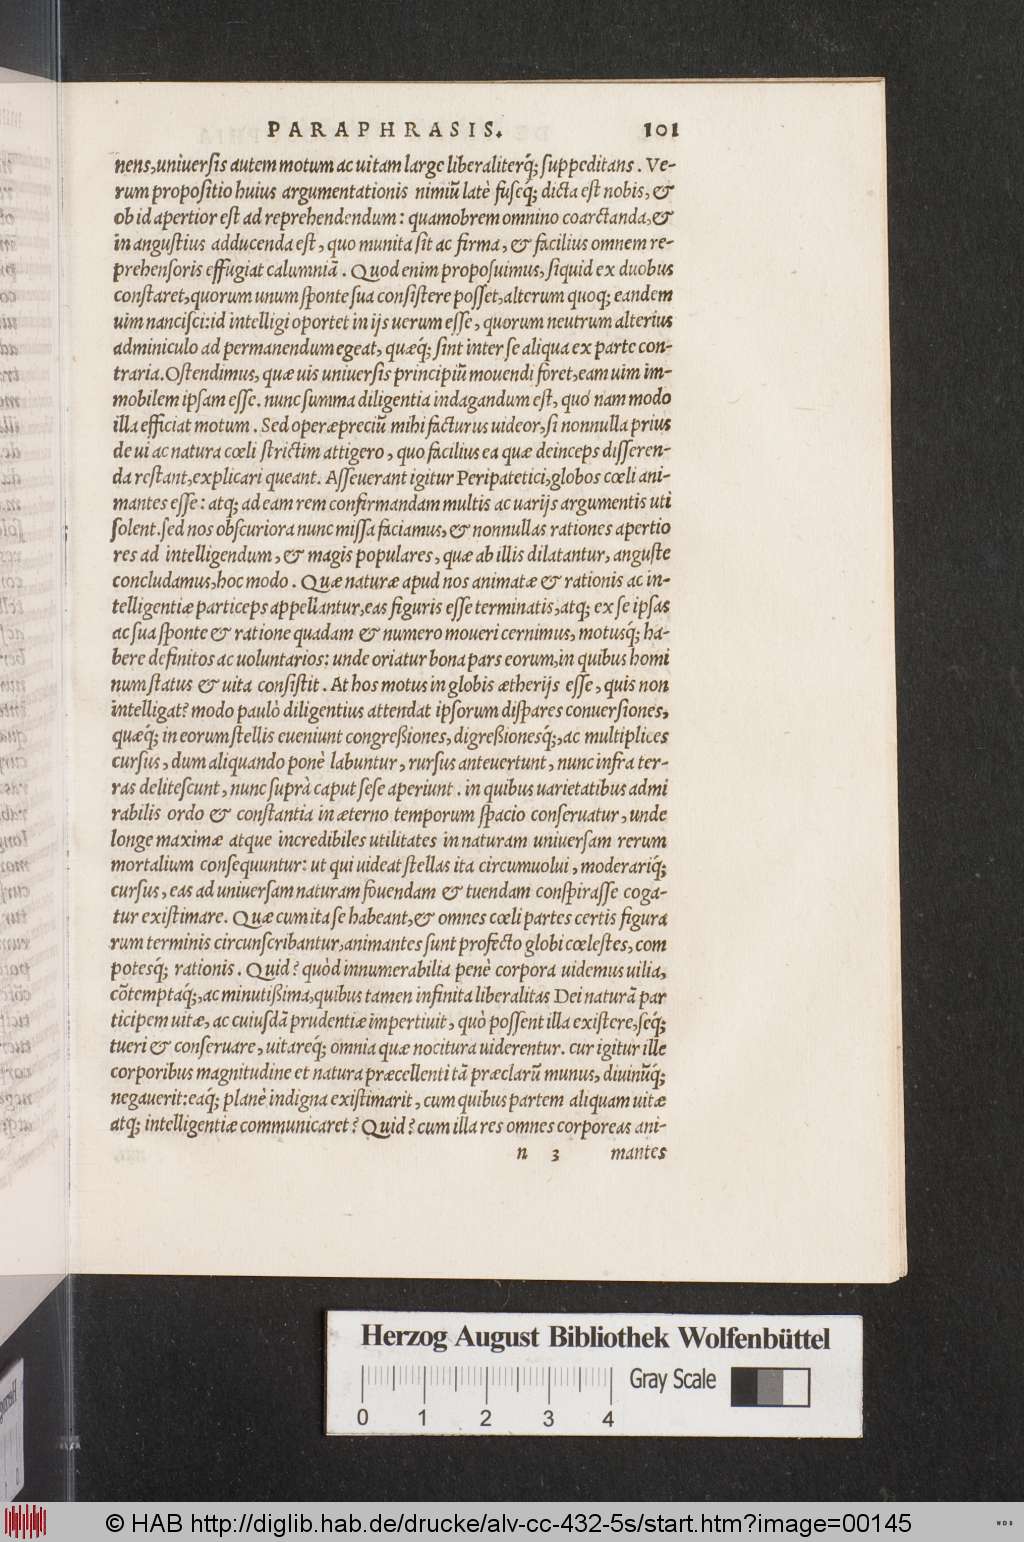 PARAPHRASIS. 101
nens, uniuersis autem motum ac uitam large liberaliterq́; suppeditans. Ve-
rum propositio huius argumentationis nimiũ latè fuseq́; dicta est nobis, &
ob id apertior est ad reprehendendum: quamobrem omnino coarctanda, &
in angustius adducenda est, quo munita sit ac firma, & facilius omnem re-
prehensoris effugiat calumniã. Quod enim proposuimus, siquid ex duobus
constaret, quorum unum sponte sua consistere posset, alterum quoq; eandem
uim nancisci: id intelligi oportet in ijs uerum esse, quorum neutrum alterius
adminiculo ad permanendum egeat, quæq́; sint inter se aliqua ex parte con-
traria. Ostendimus, quæ uis uniuersis principiũ mouendi foret, eam uim im-
mobilem ipsam esse. nunc summa diligentia indagandum est, quo nam modo
illa efficiat motum. Sed operæpreciũ mihi facturus uideor, si nonnulla prius
de ui ac natura cœli strictim attigero, quo facilius ea quæ deinceps disseren-
da restant, explicari queant. Asseuerant igitur Peripatetici, globos cœli ani-
mantes esse: atq; ad eam rem confirmandam multis ac uarijs argumentis uti
solent. sed nos obscuriora nunc missa faciamus, & nonnullas rationes apertio
res ad intelligendum, & magis populares, quæ ab illis dilatantur, anguste
concludamus, hoc modo. Quæ naturæ apud nos animatæ & rationis ac in-
telligentiæ particeps appellantur, eas figuris esse terminatis, atq; ex se ipsas
ac sua sponte & ratione quadam & numero moueri cernimus, motusq́; ha-
bere definitos ac uoluntarios: unde oriatur bona pars eorum, in quibus homi
num status & uita consistit. At hos motus in globis ætherijs esse, quis non
intelligat? modo paulò diligentius attendat ipsorum dispares conuersiones,
quæq́; in eorum stellis eueniunt congreßiones, digreßionesq́;, ac multiplices
cursus, dum aliquando ponè labuntur, rursus anteuertunt, nunc infra ter-
ras delitescunt, nunc suprà caput sese aperiunt. in quibus uarietatibus admi
rabilis ordo & constantia in æterno temporum spacio conseruatur, unde
longe maximæ atque incredibiles utilitates in naturam uniuersam rerum
mortalium consequuntur: ut qui uideat stellas ita circumuolui, moderariq́;
cursus, eas ad uniuersam naturam fouendam & tuendam conspirasse coga-
tur existimare. Quæ cum ita se habeant, & omnes cœli partes certis figura
rum terminis circunscribantur, animantes sunt profecto globi cœlestes, com
potesq́; rationis. Quid? quòd innumerabilia penè corpora uidemus uilia,
cõtemptaq́;, ac minutißima, quibus tamen infinita liberalitas Dei naturã par
ticipem uitæ, ac cuiusdã prudentiæ impertiuit, quò possent illa existere, seq́;
tueri & conseruare, uitareq́; omnia quæ nocitura uiderentur. cur igitur ille
corporibus magnitudine et natura præcellenti tã præclarũ munus, diuinũq́;
negauerit: eaq́; planè indigna existimarit, cum quibus partem aliquam uitæ
atq; intelligentiæ communicaret? Quid? cum illa res omnes corporeas ani-
n 3 mantes
Herzog August Bibliothek Wolfenbüttel
Gray Scale
0 1 2 3 4
© HAB http://diglib.hab.de/drucke/alv-cc-432-5s/start.htm?image=00145